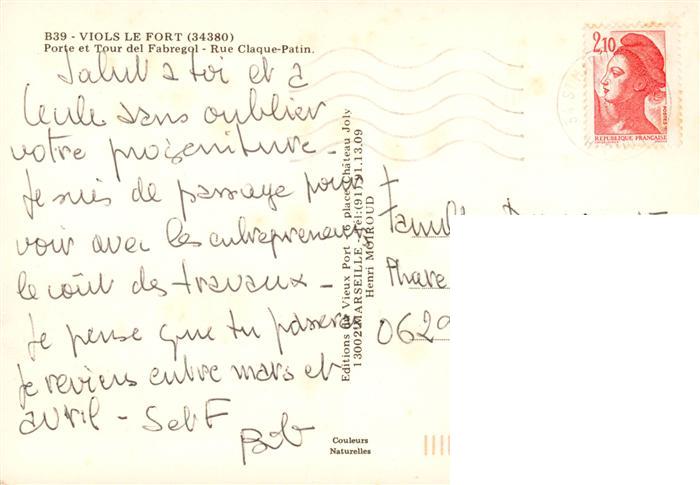 B39 - VIOLS LE FORT (34380)
Porte et Tour del Fabregol - Rue Claque-Patin.
Salut à toi et à
sans oublier
votre progéniture -
Je suis de passage pour
voir avec les entrepreneurs
le coût des travaux -
Je pense que tu passeras
Je reviens entre mars et
avril - Salut
Bob
Editions du Vieux Port - 6 place Château Joly
13002 MARSEILLE - Tél: (91) 91.13.09
Henri MOIROUD
Couleurs
Naturelles
2,10
POSTES
REPUBLIQUE FRANÇAISE
Phare